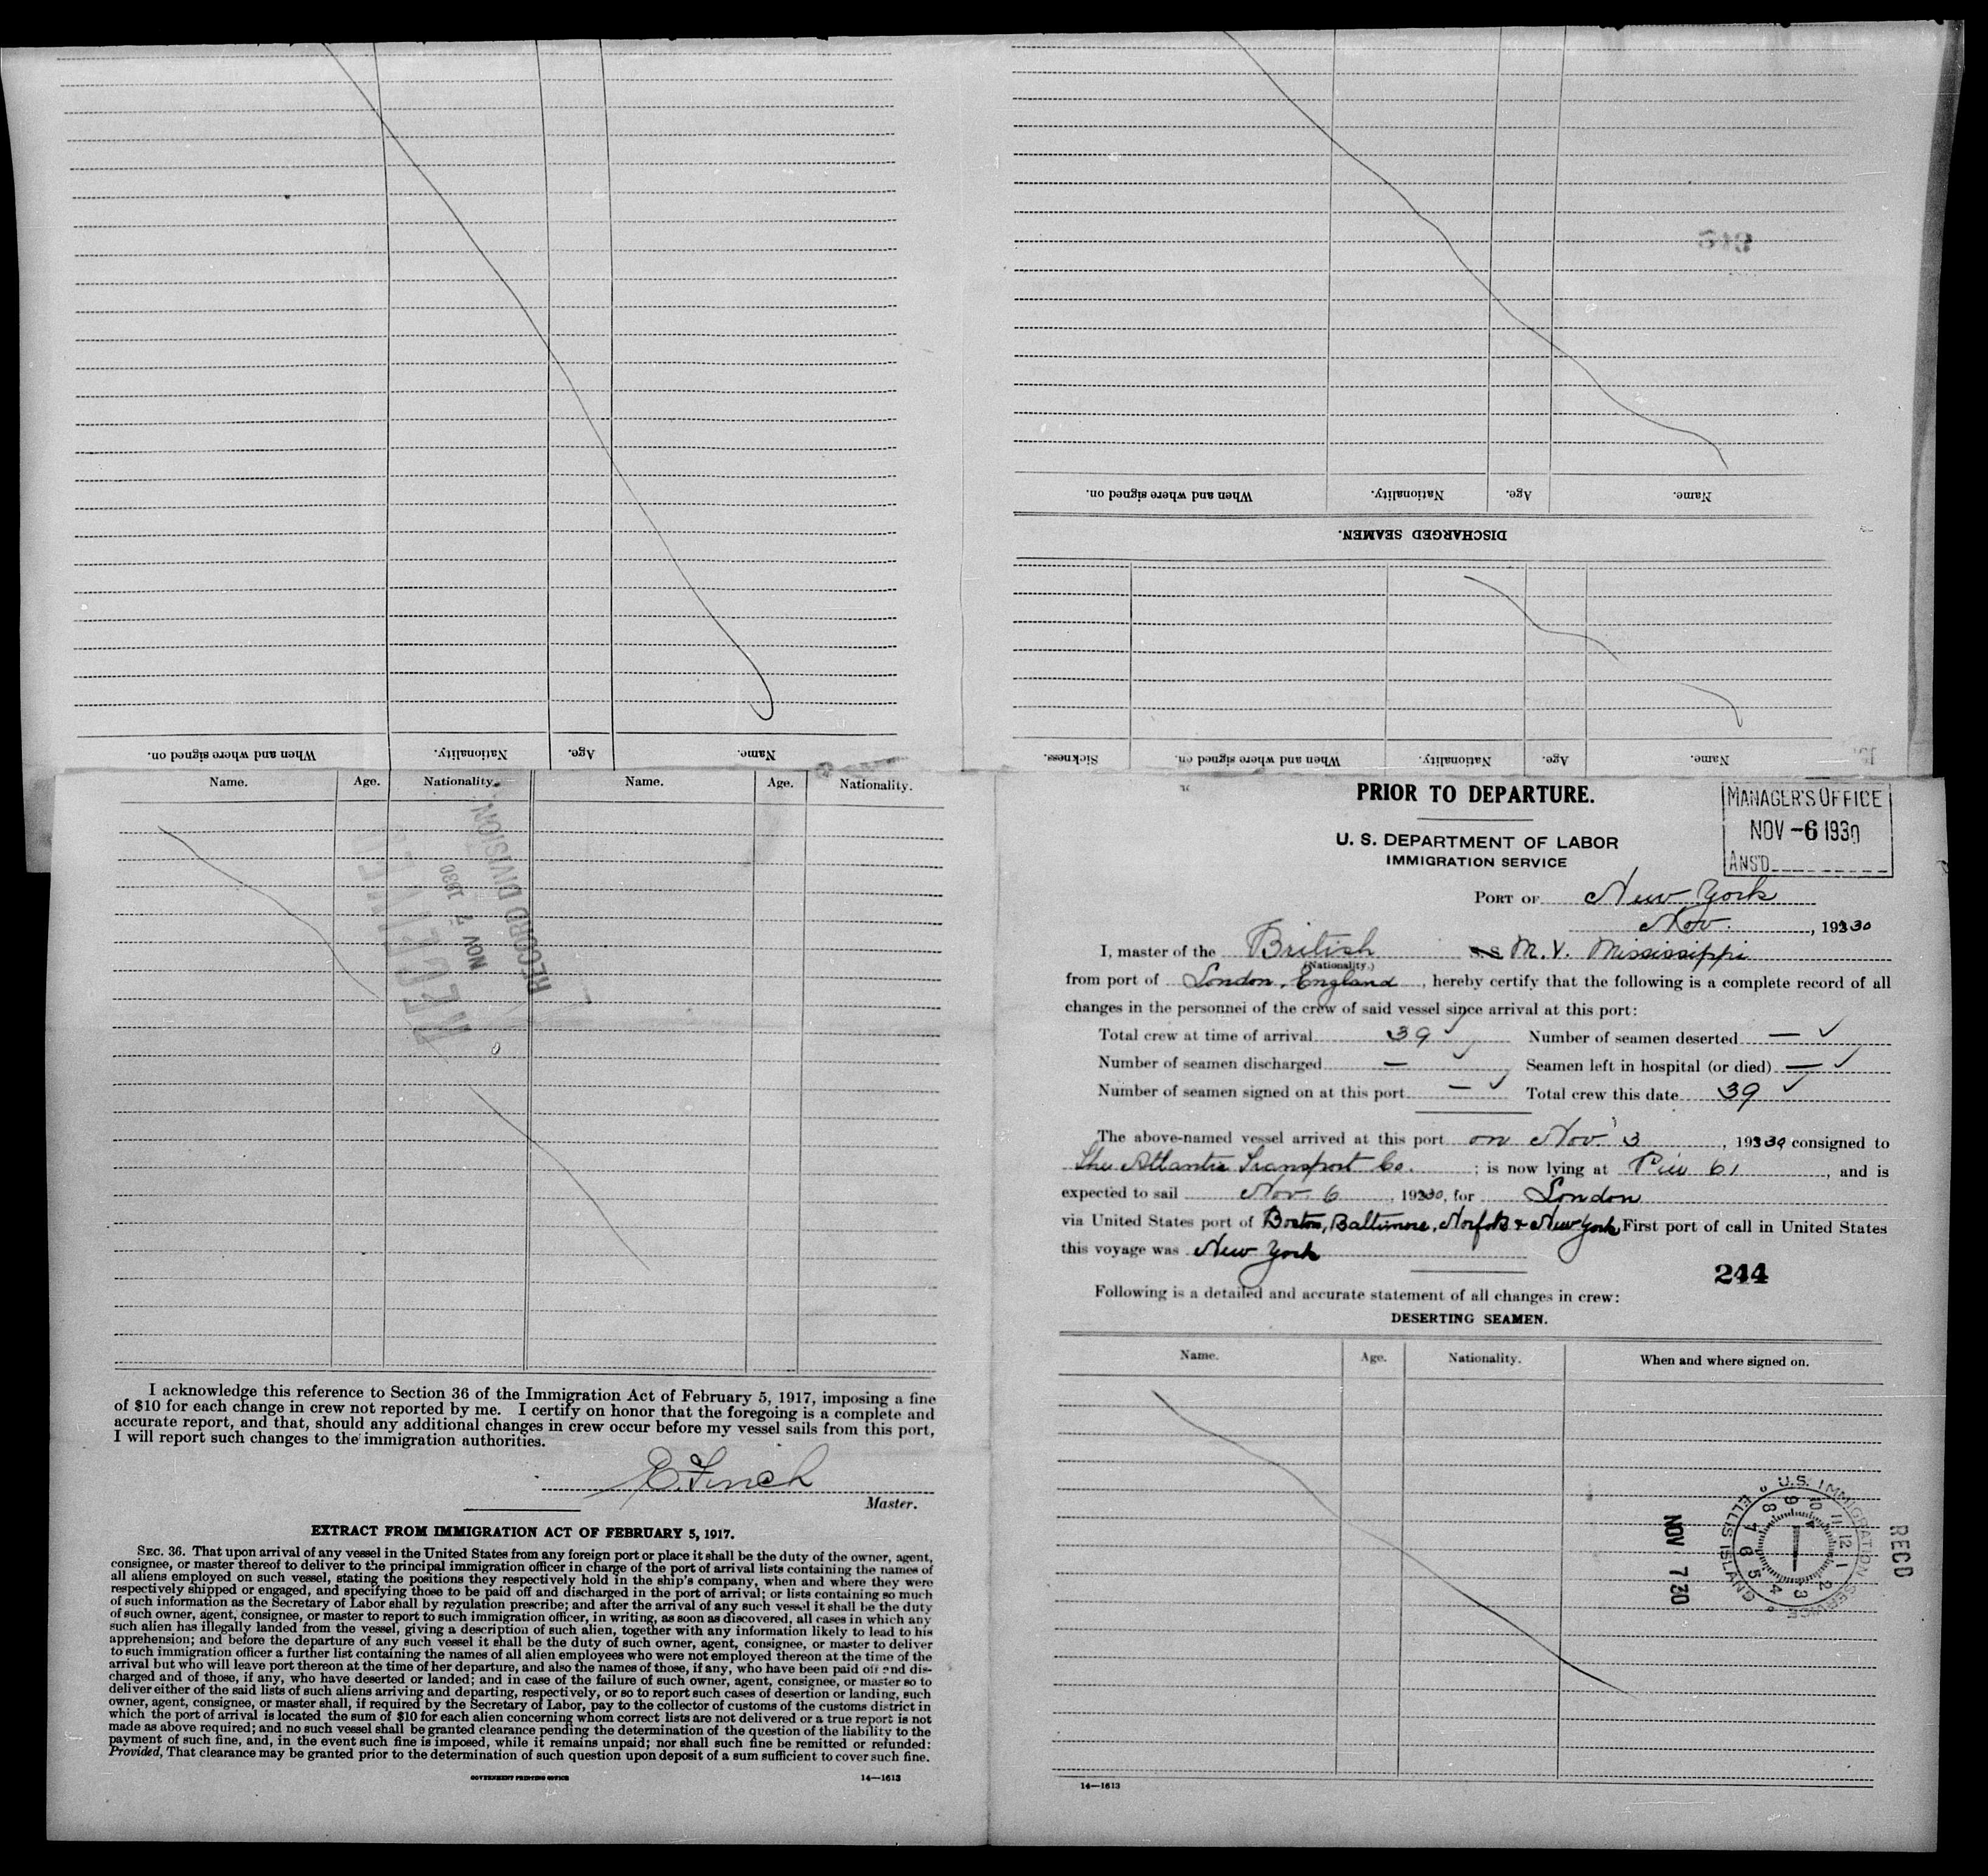 When and where signed on.
Nationality.
Age.
Name.
Name.
Age.
Nationality.
When and where signed on.
DISCHARGED SEAMEN.
Name.
Age.
Nationality.
When and where signed on.
Sickness.
Name.
Age.
Nationality.
Name.
Age.
Nationality.
RECEIVED
NOV 7 1930
RECORD DIVISION
I acknowledge this reference to Section 36 of the Immigration Act of February 5, 1917, imposing a fine
of $10 for each change in crew not reported by me. I certify on honor that the foregoing is a complete and
accurate report, and that, should any additional changes in crew occur before my vessel sails from this port,
I will report such changes to the immigration authorities.
E. Finch
Master.
EXTRACT FROM IMMIGRATION ACT OF FEBRUARY 5, 1917.
SEC. 36. That upon arrival of any vessel in the United States from any foreign port or place it shall be the duty of the owner, agent,
consignee, or master thereof to deliver to the principal immigration officer in charge of the port of arrival lists containing the names of
all aliens employed on such vessel, stating the positions they respectively hold in the ship's company, when and where they were
respectively shipped or engaged, and specifying those to be paid off and discharged in the port of arrival; or lists containing so much
of such information as the Secretary of Labor shall by regulation prescribe; and after the arrival of any such vessel it shall be the duty
of such owner, agent, consignee, or master to report to such immigration officer, in writing, as soon as discovered, all cases in which any
such alien has illegally landed from the vessel, giving a description of such alien, together with any information likely to lead to his
apprehension; and before the departure of any such vessel it shall be the duty of such owner, agent, consignee, or master to deliver
to such immigration officer a further list containing the names of all alien employees who were not employed thereon at the time of the
arrival but who will leave port thereon at the time of her departure, and also the names of those, if any, who have been paid off and dis-
charged and of those, if any, who have deserted or landed; and in case of the failure of such owner, agent, consignee, or master so to
deliver either of the said lists of such aliens arriving and departing, respectively, or so to report such cases of desertion or landing, such
owner, agent, consignee, or master shall, if required by the Secretary of Labor, pay to the collector of customs of the customs district in
which the port of arrival is located the sum of $10 for each alien concerning whom correct lists are not delivered or a true report is not
made as above required; and no such vessel shall be granted clearance pending the determination of the question of the liability to the
payment of such fine, and, in the event such fine is imposed, while it remains unpaid; nor shall such fine be remitted or refunded:
Provided, That clearance may be granted prior to the determination of such question upon deposit of a sum sufficient to cover such fine.
GOVERNMENT PRINTING OFFICE
14—1613
PRIOR TO DEPARTURE.
MANAGER'S OFFICE
NOV -6 1930
ANS'D
U. S. DEPARTMENT OF LABOR
IMMIGRATION SERVICE
PORT OF New York
Nov. , 1930
I, master of the British M.V. Mississippi
(Nationality.)
from port of London, England, hereby certify that the following is a complete record of all
changes in the personnel of the crew of said vessel since arrival at this port:
Total crew at time of arrival 39 ✓ Number of seamen deserted — ✓
Number of seamen discharged — ✓ Seamen left in hospital (or died) — ✓
Number of seamen signed on at this port — ✓ Total crew this date 39 ✓
The above-named vessel arrived at this port on Nov 3, 1930, consigned to
The Atlantic Transport Co. ; is now lying at Pier 61, and is
expected to sail Nov 6, 1930, for London
via United States port of Boston, Baltimore, Norfolk & New York First port of call in United States
this voyage was New York
244
Following is a detailed and accurate statement of all changes in crew:
DESERTING SEAMEN.
Name.
Age.
Nationality.
When and where signed on.
U.S. IMMIGRATION SERVICE
ELLIS ISLAND
12 1 2 3 4 5 6 7 8 9 10 11
NOV 7 30
REC'D
14—1613